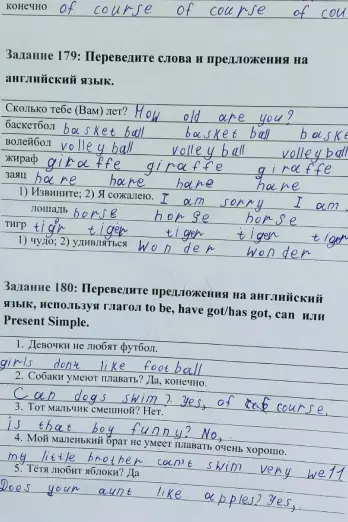 конечно of course of course of cou
Задание 179: Переведите слова и предложения на
английский язык.
Сколько тебе (Вам) лет? How old are you?
баскетбол basket ball basket ball baske
волейбол volley ball volley ball volley ball
жираф giraffe giraffe giraffe
заяц hare hare hare hare
1) Извините; 2) Я сожалею. I am sorry I am
лошадь horse horse horse
тигр tigr tiger tiger tiger tiger
1) чудо; 2) удивляться wonder wonder
Задание 180: Переведите предложения на английский
язык, используя глагол to be, have got/has got, can или
Present Simple.
1. Девочки не любят футбол.
girls dont like foot ball
2. Собаки умеют плавать? Да, конечно.
Can dogs swim? Yes, of course.
3. Тот мальчик смешной? Нет.
is that boy funny? No,
4. Мой маленький брат не умеет плавать очень хорошо.
my little brother can't swim very well.
5. Тётя любит яблоки? Да
Does your aunt like apples? Yes,